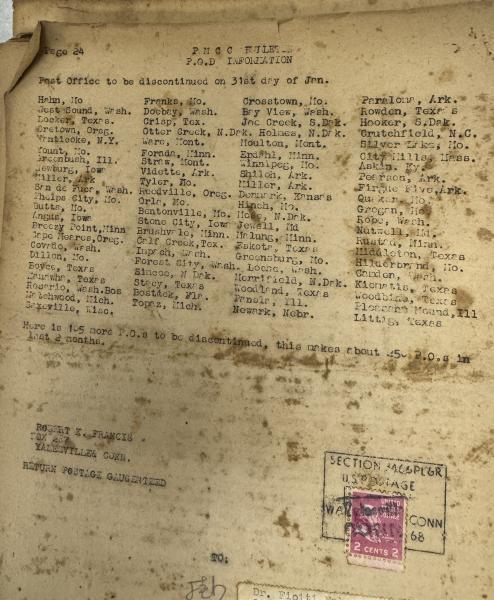 Page 24 P M C C BULLETIN
P.O.D INFORMATION
Post Office to be discontinued on 31st day of Jan.
Hahn, Mo Franks, Mo. Crosstown, Mo. Paraloma, Ark.
West Sound, Wash. Doebay, Wash. Bay View, Wash. Rowden, Texas
Locker, Texas. Crisp, Tex. Joe Creek, S.Dak. Hooker, S.Dak.
Oretown, Oreg. Otter Creek, N.Dak. Holmes, N.Dak. Crutchfield, N.C.
Nanticoke, N.Y. Ware, Mont. Moulton, Mont. Silver Lake, Mo.
Yount, Mo. Forada, Minn. Epdahl, Minn. City Mills, Mass.
Greenbush, Ill. Straw, Mont. Winnipeg, Mo. Askin, Ky.
Newburg, Iowa Vidette, Ark Shiloh, Ark. Pearson, Ark.
Miller, Ark Tyler, Mo. Miller, Ark. Figure Five, Ark.
San de Fuca, Wash. Reedville, Oreg. Denmark, Kansas Quaker, Mo.
Phelps City, Mo. Orla, Mo. Hinch, Mo. Grogan, Mo.
Butts, Mo. Bentonville, Mo. N.Dak. Rope, Wash.
Angus, Iowa Stone City, Iowa Jewell, Md Nutwell, Md.
Breezy Point, Minn Brushvale, Minn. Malung, Minn. Rustad, Minn.
Cape Meares, Oreg. Calf Creek, Tex. Eskota, Texas Middleton, Texas
Covada, Wash. Impach, Wash. Greensburg, Mo. Hilderbrand, Mo.
Dillon, Mo. Forest City, Wash. Locne, Wash. Camden, Wash.
Boyce, Texas N Dak. Merrifield, N.Dak. Texas
Texas Stacy, Texas Woodland, Texas Woodbine, Texas
Rosario, Wash. Bostick, Fla. Panola, Ill. Pleasant Mound, Ill
Matchwood, Mich. Topaz, Mich. Newark, Nebr. Littig, Texas
Saxeville, Wisc.
Here is 105 more P.O.s to be discontinued, this makes about 250 P.O.s in
last 2 months.
ROBERT K. FRANCIS
BOX 247
YALESVILLE CONN.
RETURN POSTAGE GAUGENTEED
SECTION 34.66 PL&R
U.S. POSTAGE
CONN
68
2 CENTS 2
TO:
Dr.